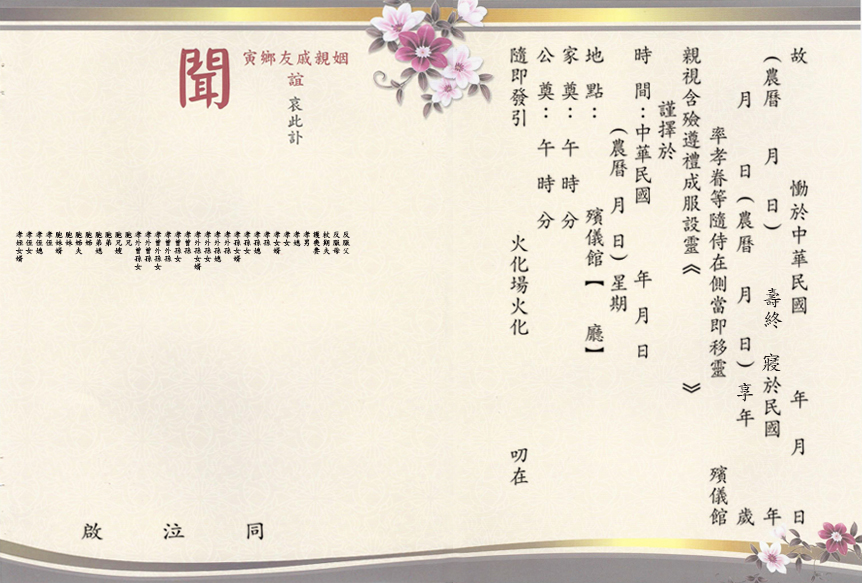 故 慟於中華民國 年 月 日
(農曆 月 日) 壽終 寢於民國 年
月 日(農曆 月 日)享年 歲
率孝眷等隨侍在側當即移靈 殯儀館
親視含殮遵禮成服設靈《 》
謹擇於
時 間:中華民國 年 月 日
(農曆 月 日)星期
地 點: 殯儀館【 廳】
家 奠: 午 時 分
公 奠: 午 時 分
隨即發引 火化場火化 叨在
姻親戚友鄉寅
誼
哀此訃
聞
反服父
反服母
杖期夫
護喪妻
孝男
孝媳
孝女
孝女婿
孝孫
孝孫媳
孝孫女
孝孫女婿
孝外孫
孝外孫媳
孝外孫女
孝外孫女婿
孝曾孫
孝曾孫女
孝曾外孫
孝曾外孫女
孝外曾孫
孝外曾孫女
胞兄
胞兄嫂
胞弟
胞弟媳
胞姊
胞姊夫
胞妹
胞妹婿
孝侄
孝侄媳
孝侄女
孝侄女婿
同 泣 啟